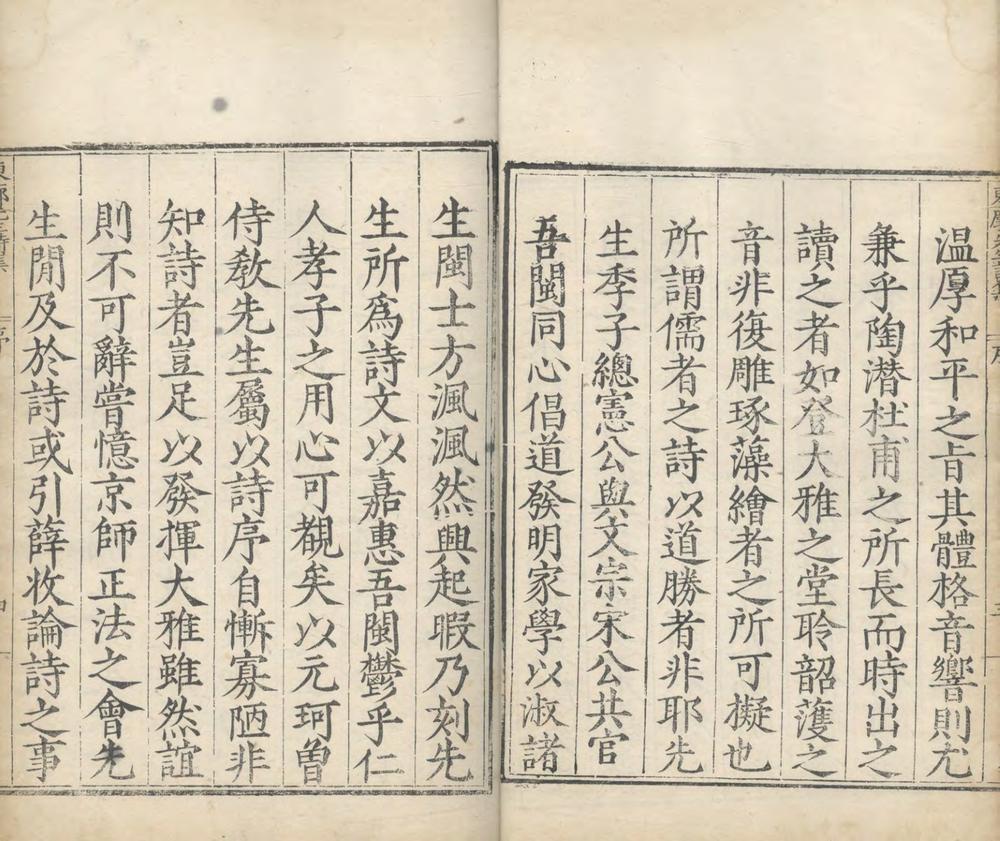 温厚和平之旨其體格音響則尤
兼乎陶潛杜甫之所長而時出之
讀之者如登大雅之堂聆韶頀之
音非復雕琢藻繪者之所可擬也
所謂儒者之詩以道勝者非耶先
生季子總憲公與文宗宋公共官
吾閩同心倡道發明家學以淑諸
生閩士方渢渢然興起暇乃刻先
生所爲詩文以嘉惠吾閩鬱乎仁
人孝子之用心可覩矣以元珂曽
侍教先生屬以詩序自慚寡陋非
知詩者豈足以發揮大雅雖然誼
則不可辭嘗憶京師正法之會先
生閒及於詩或引薛收論詩之事